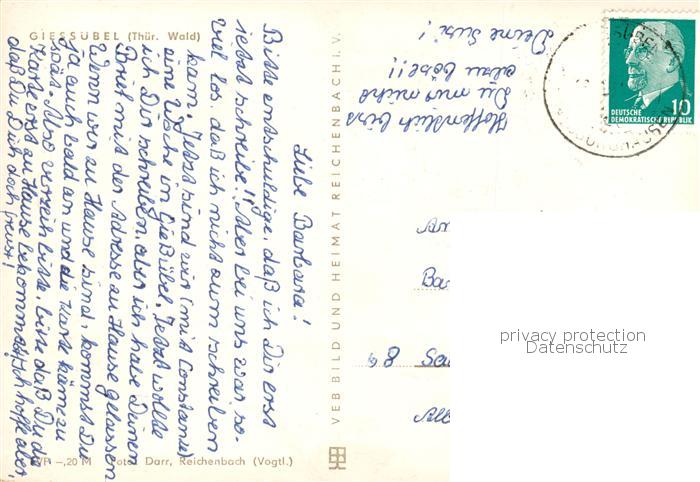 GIESSÜBEL (Thür. Wald)
Liebe Barbara!
Bitte entschuldige, daß ich Dir erst
jetzt schreibe!! Aber bei uns war so-
viel los, daß ich nicht zum schreiben
kam. Jetzt sind wir (mit Constanze)
eine Woche in Gießübel. Jetzt wollte
ich Dir schreiben, aber ich habe Deinen
Brief mit der Adresse zu Hause gelassen
Wenn wir zu Hause sind, kommst Du
ja auch bald an und die Karte käme zu
spät. Also verzeih bitte, bitte daß Du die
Karte erst zu Hause bekommst. Ich hoffe aber,
daß Du Dich doch freust!
Hoffentlich bist
Du mir nicht
allzu böse!!
Deine Susi!
VEB BILD UND HEIMAT REICHENBACH I. V.
-,20 M Foto: Darr, Reichenbach (Vogtl.)
10
DEUTSCHE
DEMOKRATISCHE REPUBLIK
privacy protection
Datenschutz